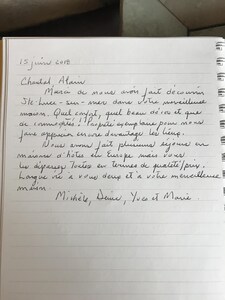 15 juin 2018
Chantal, Alain
Merci de nous avoir fait découvrir
Ste-Luce-sur-mer dans votre merveilleuse
maison. Quel confort, quel beau décor et que
de commodités! Propreté exemplaire pour nous
faire apprécier encore davantage les lieux.
Nous avons fait plusieurs séjours en
maisons d'hôtes en Europe mais vous
les dépassez toutes en termes de qualité/prix.
Longue vie à vous deux et à votre merveilleuse
maison
Michèle, Denis, Yves et Marie